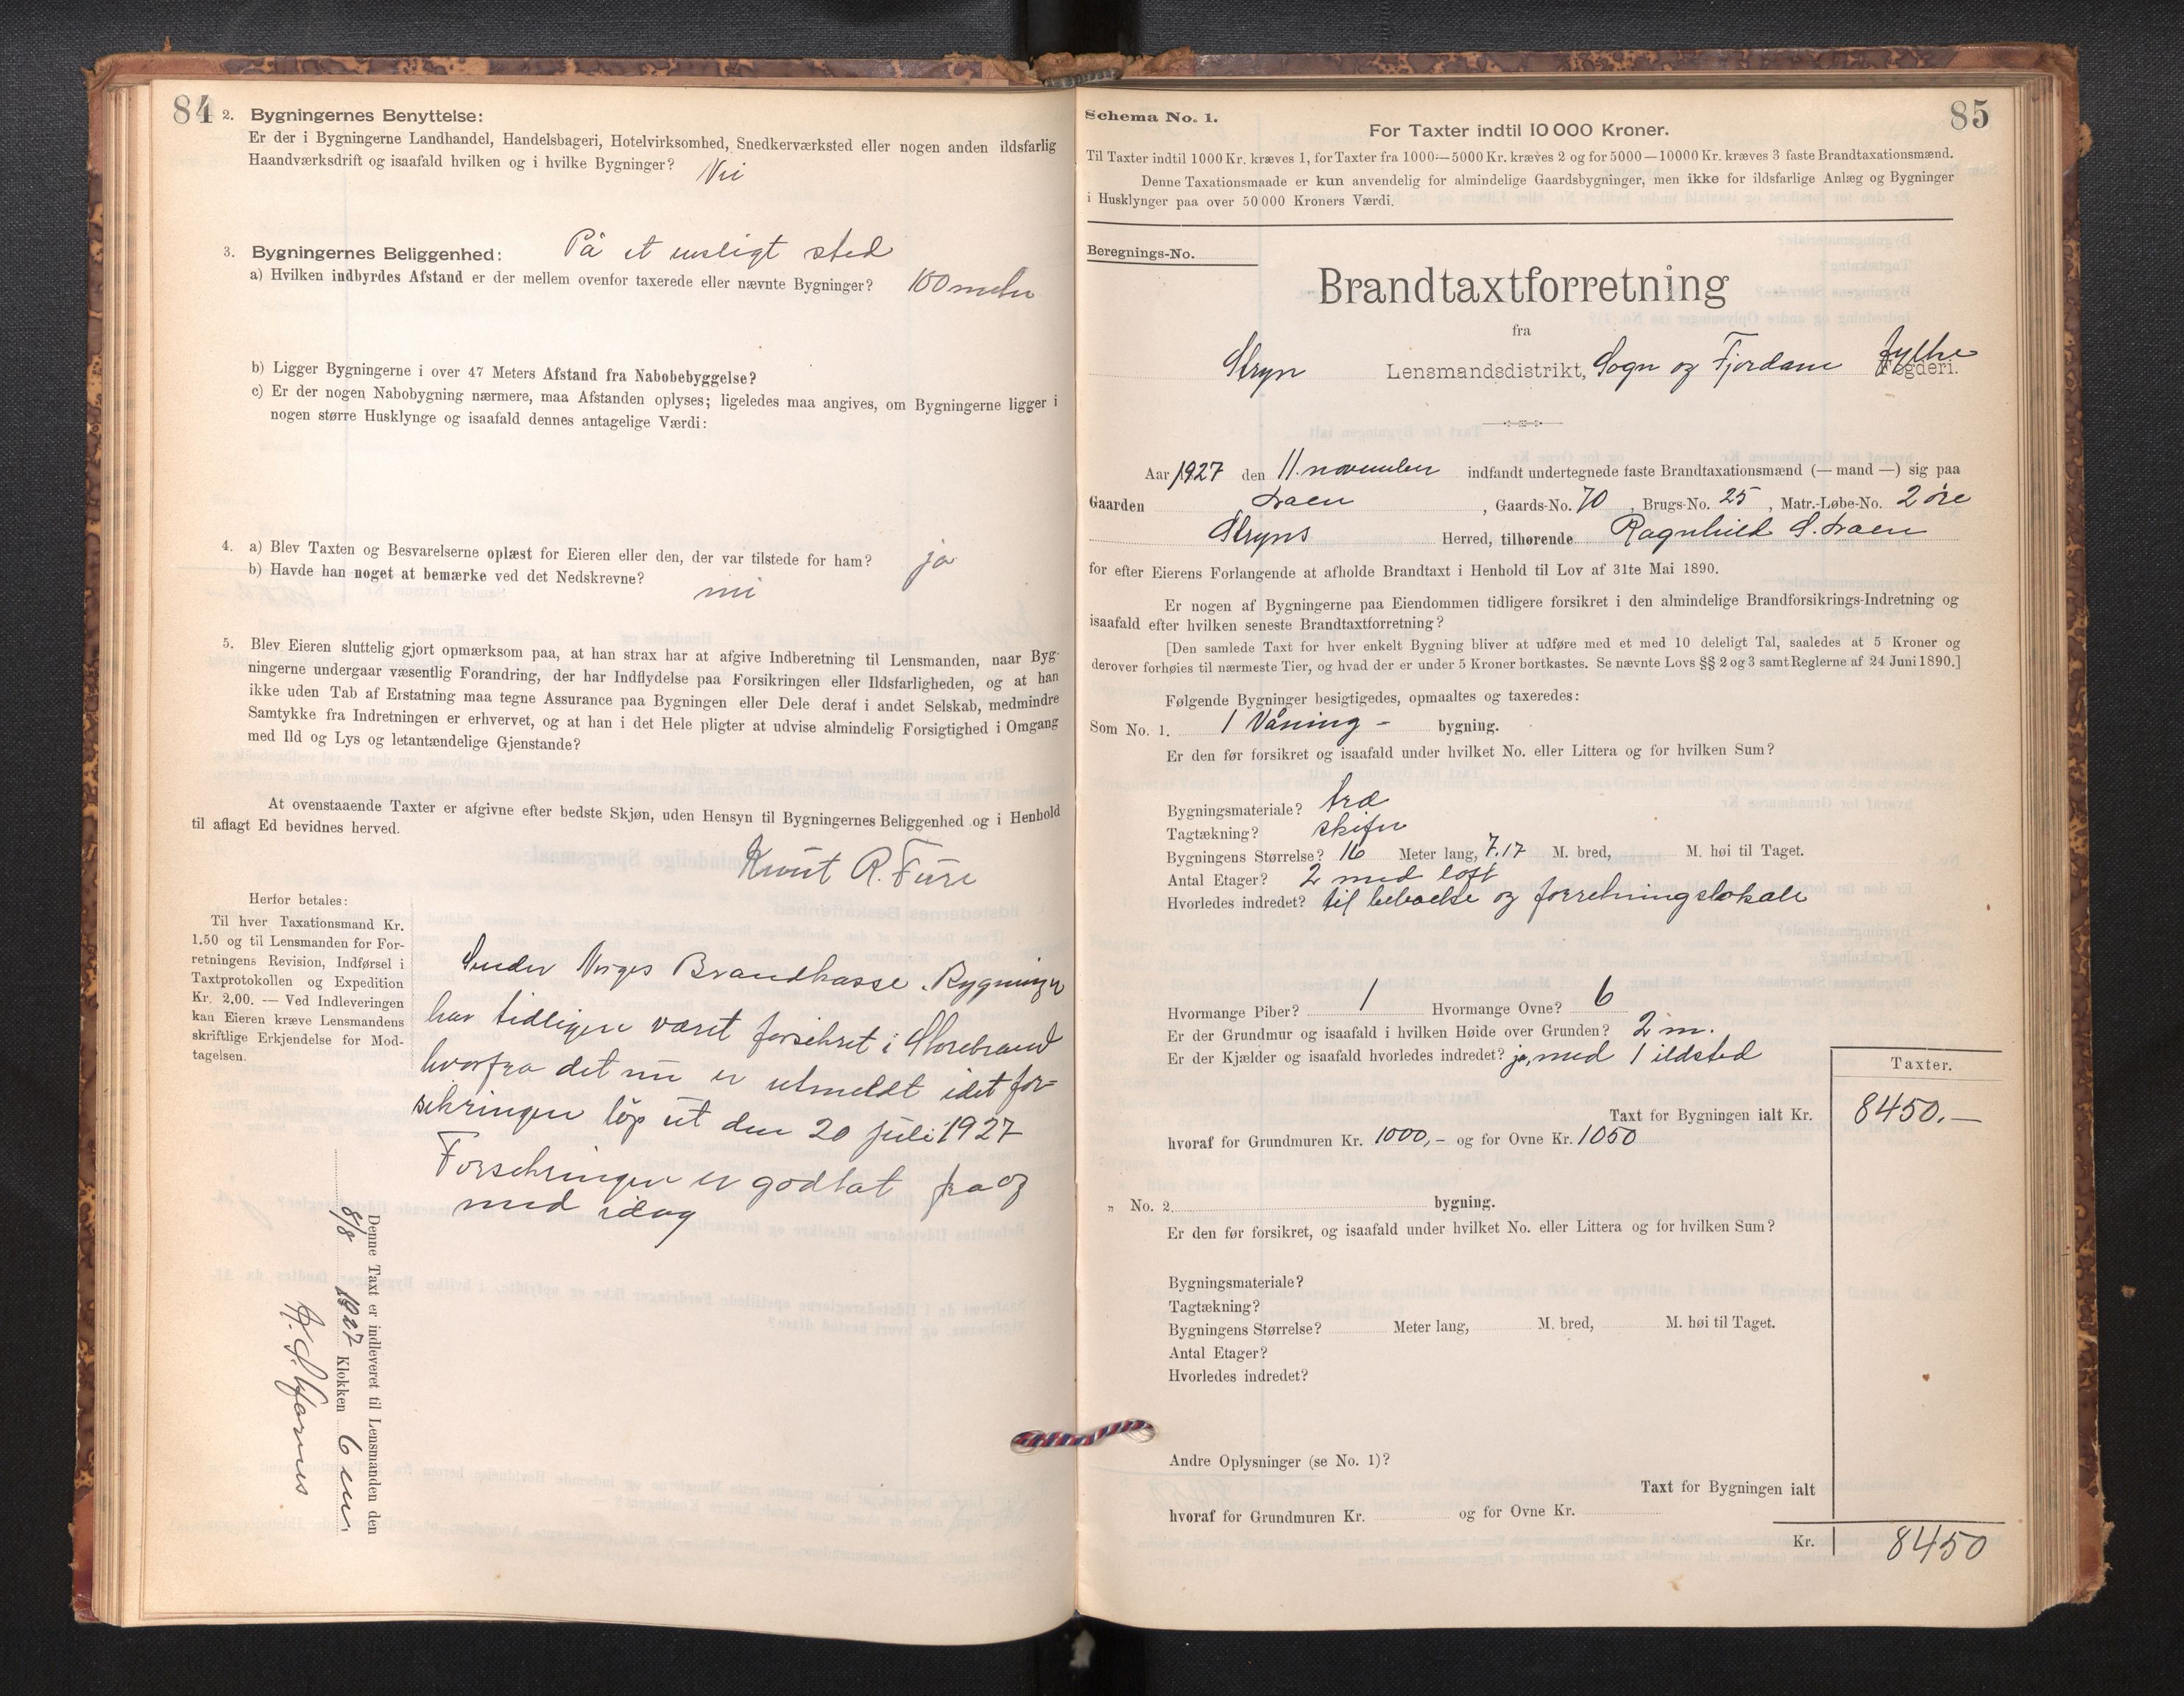 84
2. Bygningernes Benyttelse:
Er der i Bygningerne Landhandel, Handelsbageri, Hotelvirksomhed, Snedkerværksted eller nogen anden ildsfarlig
Haandværksdrift og isaafald hvilken og i hvilke Bygninger? Nei
3. Bygningernes Beliggenhed: På et usligt sted
a) Hvilken indbyrdes Afstand er der mellem ovenfor taxerede eller nævnte Bygninger? 100 meter
b) Ligger Bygningerne i over 47 Meters Afstand fra Nabobebyggelse?
c) Er der nogen Nabobygning nærmere, maa Afstanden oplyses; ligeledes maa angives, om Bygningerne ligger i
nogen større Husklynge og isaafald dennes antagelige Værdi:
4. a) Blev Taxten og Besvarelserne oplæst for Eieren eller den, der var tilstede for ham? ja
b) Havde han noget at bemærke ved det Nedskrevne? nei
5. Blev Eieren sluttelig gjort opmærksom paa, at han strax har at afgive Indberetning til Lensmanden, naar Byg-
ningerne undergaar væsentlig Forandring, der har Indflydelse paa Forsikringen eller Ildsfarligheden, og at han
ikke uden Tab af Erstatning maa tegne Assurance paa Bygningen eller Dele deraf i andet Selskab, medmindre
Samtykke fra Indretningen er erhvervet, og at han i det Hele pligter at udvise almindelig Forsigtighed i Omgang
med Ild og Lys og letantændelige Gjenstande?
At ovenstaaende Taxter er afgivne efter bedste Skjøn, uden Hensyn til Bygningernes Beliggenhed og i Henhold
til aflagt Ed bevidnes herved.
Knut R. Fure
Herfor betales:
Til hver Taxationsmand Kr.
1.50 og til Lensmanden for For-
retningens Revision, Indførsel i
Taxtprotokollen og Expedition
Kr. 2.00. — Ved Indleveringen
kan Eieren kræve Lensmandens
skriftlige Erkjendelse for Mod-
tagelsen.
Sender Norges Brandkasse. Bygningen
har tidligere været forsikret i Storebrand
hvorfra det nu er utmeldt idet for-
sikringen løp ut den 20 juli 1927
Forsikringen er godtat fra og
med idag
Denne Taxt er indleveret til Lensmanden den
8/8 1927 Klokken 6 em.
85
Schema No. 1.
For Taxter indtil 10 000 Kroner.
Til Taxter indtil 1000 Kr. kræves 1, for Taxter fra 1000—5000 Kr. kræves 2 og for 5000—10000 Kr. kræves 3 faste Brandtaxationsmænd.
Denne Taxationsmaade er kun anvendelig for almindelige Gaardsbygninger, men ikke for ildsfarlige Anlæg og Bygninger
i Husklynger paa over 50 000 Kroners Værdi.
Beregnings-No.
Brandtaxtforretning
fra
Stryn Lensmandsdistrikt, Sogn og Fjordane fylke Fogderi.
Aar 1927 den 11. november indfandt undertegnede faste Brandtaxationsmænd (— mand —) sig paa
Gaarden , Gaards-No. 70 , Brugs-No. 25 , Matr.-Løbe-No. 2 øre
Stryns Herred, tilhørende Ragnhild S.
for efter Eierens Forlangende at afholde Brandtaxt i Henhold til Lov af 31te Mai 1890.
Er nogen af Bygningerne paa Eiendommen tidligere forsikret i den almindelige Brandforsikrings-Indretning og
isaafald efter hvilken seneste Brandtaxtforretning?
[Den samlede Taxt for hver enkelt Bygning bliver at udføre med et med 10 deleligt Tal, saaledes at 5 Kroner og
derover forhøies til nærmeste Tier, og hvad der er under 5 Kroner bortkastes. Se nævnte Lovs §§ 2 og 3 samt Reglerne af 24 Juni 1890.]
Følgende Bygninger besigtigedes, opmaaltes og taxeredes:
Som No. 1. 1 Våning - bygning.
Er den før forsikret og isaafald under hvilket No. eller Littera og for hvilken Sum?
Bygningsmateriale? træ
Tagtækning? skifer
Bygningens Størrelse? 16 Meter lang, 7.17 M. bred, M. høi til Taget.
Antal Etager? 2 med loft
Hvorledes indredet? til beboelse og forretningslokale
Hvormange Piber? 1 Hvormange Ovne? 6
Er der Grundmur og isaafald i hvilken Høide over Grunden? 2 m.
Er der Kjælder og isaafald hvorledes indredet? ja, med 1 ildsted
Taxter.
Taxt for Bygningen ialt Kr. 8450.—
hvoraf for Grundmuren Kr. 1000,- og for Ovne Kr. 1050
" No. 2 bygning.
Er den før forsikret, og isaafald under hvilket No. eller Littera og for hvilken Sum?
Bygningsmateriale?
Tagtækning?
Bygningens Størrelse? Meter lang, M. bred, M. høi til Taget.
Antal Etager?
Hvorledes indredet?
Andre Oplysninger (se No. 1)?
Taxt for Bygningen ialt
hvoraf for Grundmuren Kr. og for Ovne Kr.
Kr. 8450